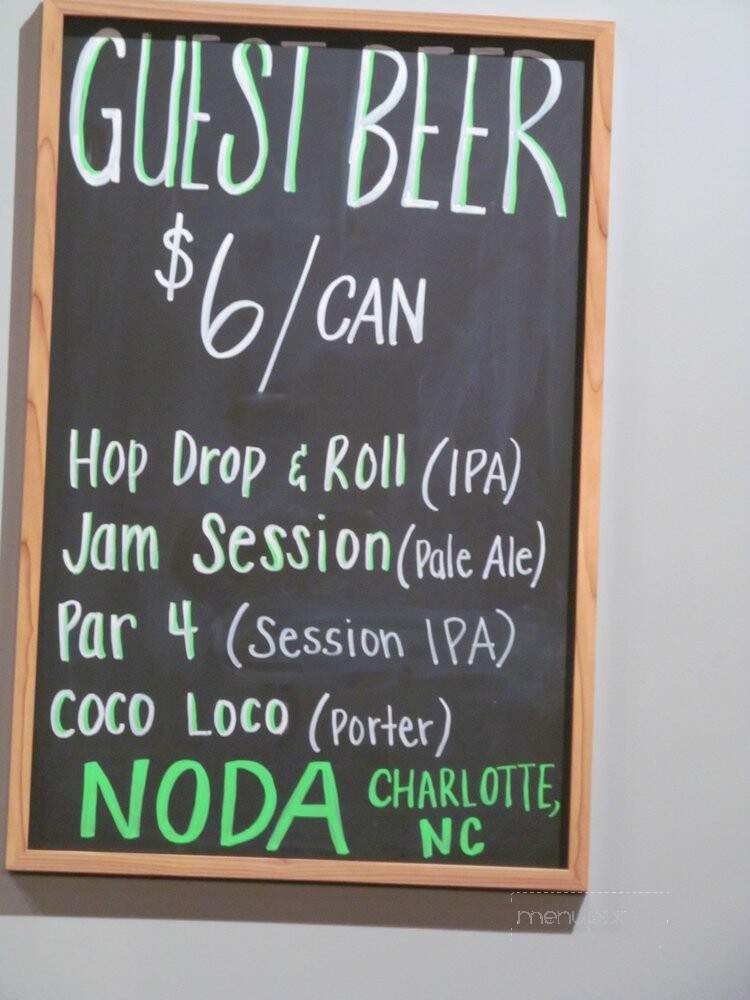 GUEST BEER
$6/CAN
Hop Drop & Roll (IPA)
Jam Session (Pale Ale)
Par 4 (Session IPA)
COCO LOCO (Porter)
NODA CHARLOTTE,
NC